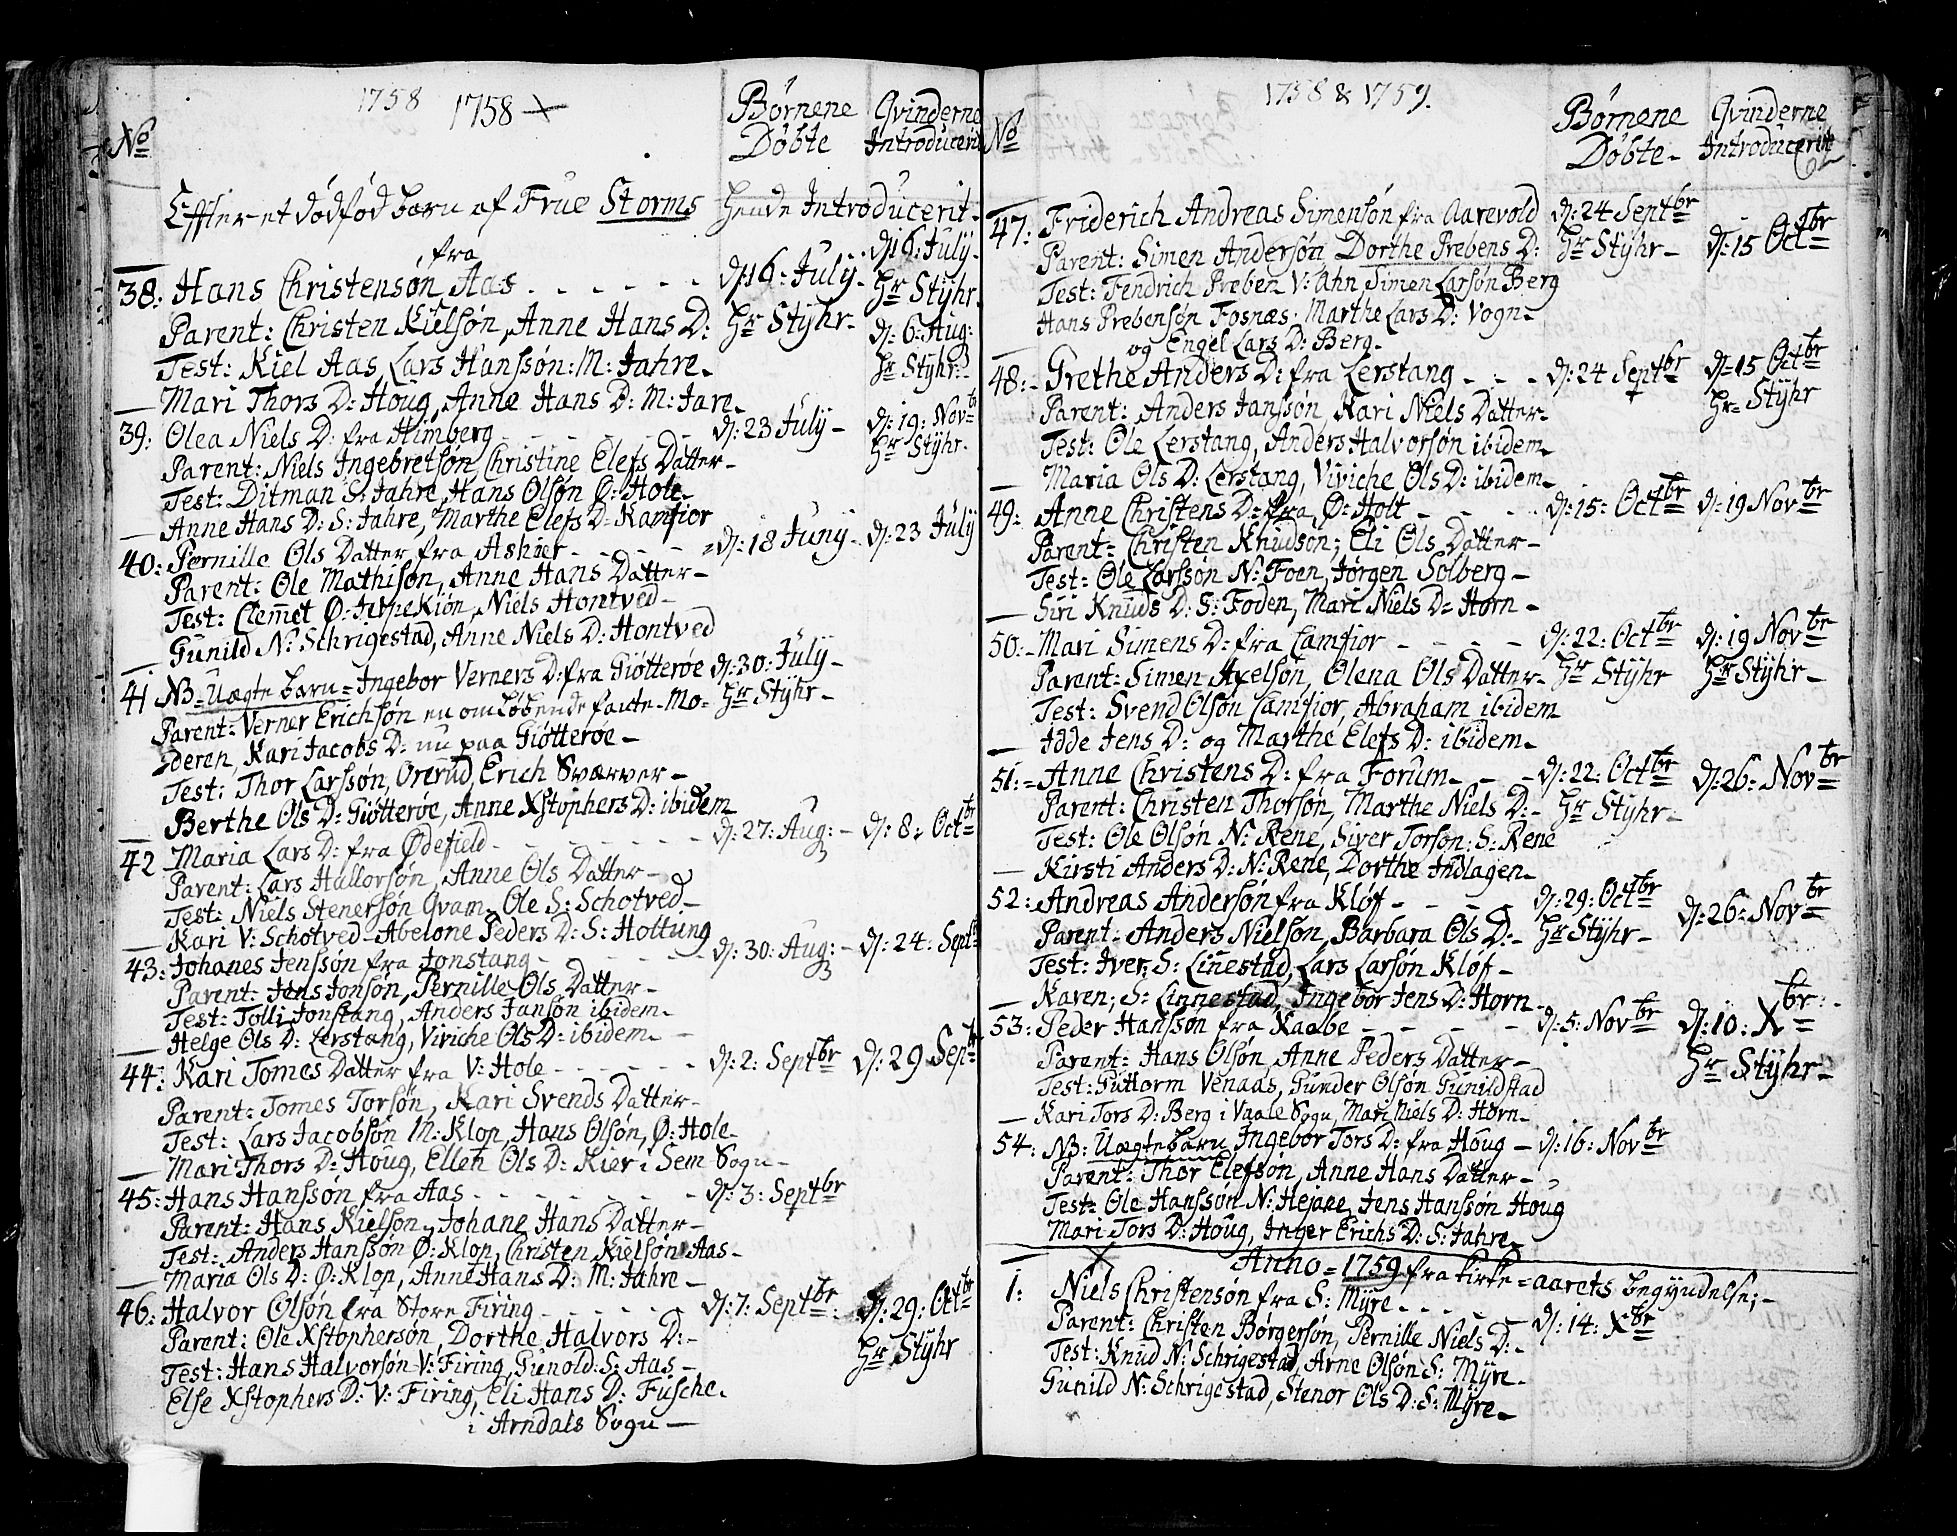 1758 1758
No Børnene Døbte Qvinderne Introducerit
Effter et dødfød barn af Frue Storms hende Introducerit
d: 16: July
Hr Styhr
38: Hans Christensøn fra Aas d: 16: July
Parent: Christen Kielsøn, Anne Hans D: Hr Styhr d: 6: Aug:
Test: Kiel Aas, Lars Hanssøn: M: Jahre Hr Styhr
Mari Thors D: Houg, Anne Hans D: M: Jare
39: Olea Niels D: fra Himberg d: 23 July d: 19: Novbr
Parent: Niels Ingebretsøn, Christine Elefs Datter Hr Styhr
Test: Ditman S: Jahre, Hans Olsøn Ø: Hole
Anne Hans D: S: Jahre, Marthe Elefs D: Kamfior
40: Pernille Ols Datter fra Askier d: 18 Junij d: 23 July
Parent: Ole Mathisøn, Anne Hans Datter
Test: Clemet Ø: Jerpekiøn, Niels Hontved
Gunild N: Schrigestad, Anne Niels D: Hontved
41 NB= Uægte barn= Ingebor Verners D: fra Giøtterøe d: 30: July
Parent: Verner Erichsøn en omløbende fante- Mo= Hr Styhr
deren, Kari Jacobs D: nu paa Giøtterøe
Test: Thor Larssøn, Orerud, Erich Sværver
Berthe Ols D: Giøtterøe, Anne Xstophers D: ibidem
42 Maria Lars D: fra Ødefield d: 27: Aug: d: 8: Octbr
Parent: Lars Hallorsøn, Anne Ols Datter
Test: Niels Stenersøn Qvam, Ole S: Schotved
Kari V: Schotved- Abelone Peders D: S: Holtung
43: Johanes Jenssøn fra Jonstang d: 30: Aug: d: 24: Septbr
Parent: Jens Jonsøn, Pernille Ols Datter
Test: Tolli Jonstang, Anders Jansøn ibidem
Helge Ols D: Lerstang, Viriche Ols D: ibidem
44: Kari Tomes Datter fra V: Hole d: 2: Septbr d: 29 Septbr
Parent: Tomes Torsøn, Kari Svends Datter
Test: Lars Jacobsøn M: Klop, Hans Olsøn, Ø: Hole
Mari Thors D: Houg, Ellen Ols D: Kier i Sem Sogn
45: Hans Hanssøn fra Aas d: 3: Septbr
Parent: Hans Kielsøn, Johane Hans Datter
Test: Anders Hanssøn Ø: Klop, Christen Kielsøn Aas
Maria Ols D: Ø: Klop, Anne Hans D: M: Jahre
46: Halvor Olsøn fra Store Firing d: 7: Septbr d: 29: Octbr
Parent: Ole Xstophersøn, Dorthe Halvors D: Hr Styhr
Test: Hans Halvorsøn V: Firing, Gunold S: Aas
Else Xstophers D: V: Firing, Eli Hans D: Fusche
i Arndals Sogn
1758 & 1759.
No Børnene Døbte Qvinderne Introducerit
62
47: Friderich Andreas Simensøn fra Aarevold d: 24 Septbr
Parent: Simen Andersøn, Dorthe Prebens D: Hr Styhr d: 15 Octbr
Test: Fendrich Preben V: Ahn, Simen Larsøn Berg
Hans Prebensøn Fosnæs, Marthe Lars D: Vogn
og Engel Lars D: Berg
48: Grethe Anders D: fra Lerstang d: 24 Septbr d: 15 Octbr
Parent: Anders Janssøn, Kari Niels Datter Hr Styhr
Test: Ole Lerstang, Anders Halvorsøn ibidem
Maria Ols D: Lerstang, Viviche Ols D: ibidem
49: Anne Christens D: fra Ø: Holt d: 15: Octbr d: 19 Novbr
Parent: Christen Knudson, Eli Ols Datter
Test: Ole Larssøn N: Foen, Jørgen Solberg
Siri Knuds D: S: Foden, Mari Niels D: Horn
50: Mari Simens D: fra Camfior d: 22: Octbr d: 19 Novbr
Parent: Simen Axelsøn, Olena Ols Datter Hr Styhr Hr Styhr
Test: Svend Olsøn Camfior, Abraham ibidem
Idde Jens D: og Marthe Elefs D: ibidem
51: Anne Christens D: fra Forum d: 22: Octbr d: 26: Novbr
Parent: Christen Thorsøn, Marthe Niels D: Hr Styhr
Test: Ole Olsøn N: Rene, Siver Torson: S: Rene
Kirsti Anders D: N: Rene, Dorthe Indlagen
52: Andreas Andersøn fra Kløf d: 29: Octbr d: 26: Novbr
Parent: Anders Nielsøn, Barbara Ols D: Hr Styhr
Test: Iver S: Linestad, Lars Larsøn Kløf
Karen; S: Linnestad, Ingebor Jens D: Horn
53: Peder Hanssøn fra Xaabe d: 5: Novbr d: 10: Xbr
Parent: Hans Olsøn, Anne Peders Datter Hr Styhr
Test: Guttorm Venaas, Gunder Olsøn Gunildstad
Kari Tors D: Berg i Vaale Sogn, Mari Niels D: Horn
54: NB: Uægte barn, Ingebor Tors D: fra Houg d: 16: Novbr
Parent: Thor Elefsøn, Anne Hans Datter
Test: Ole Hanssøn N: Hejare, Jens Hanssøn Houg
Mari Tors D: Houg, Inger Erichs D: S: Jahre
Anno= 1759 fra kirke= aarets begyndelse;
1: Niels Christensøn fra S: Myre d: 14: Xbr
Parent: Christen Børgersøn, Pernille Niels D:
Test: Knud N: Schrigestad, Arne Olsøn S: Myre
Gunild N: Schrigestad, Stenor Ols D: S: Myre